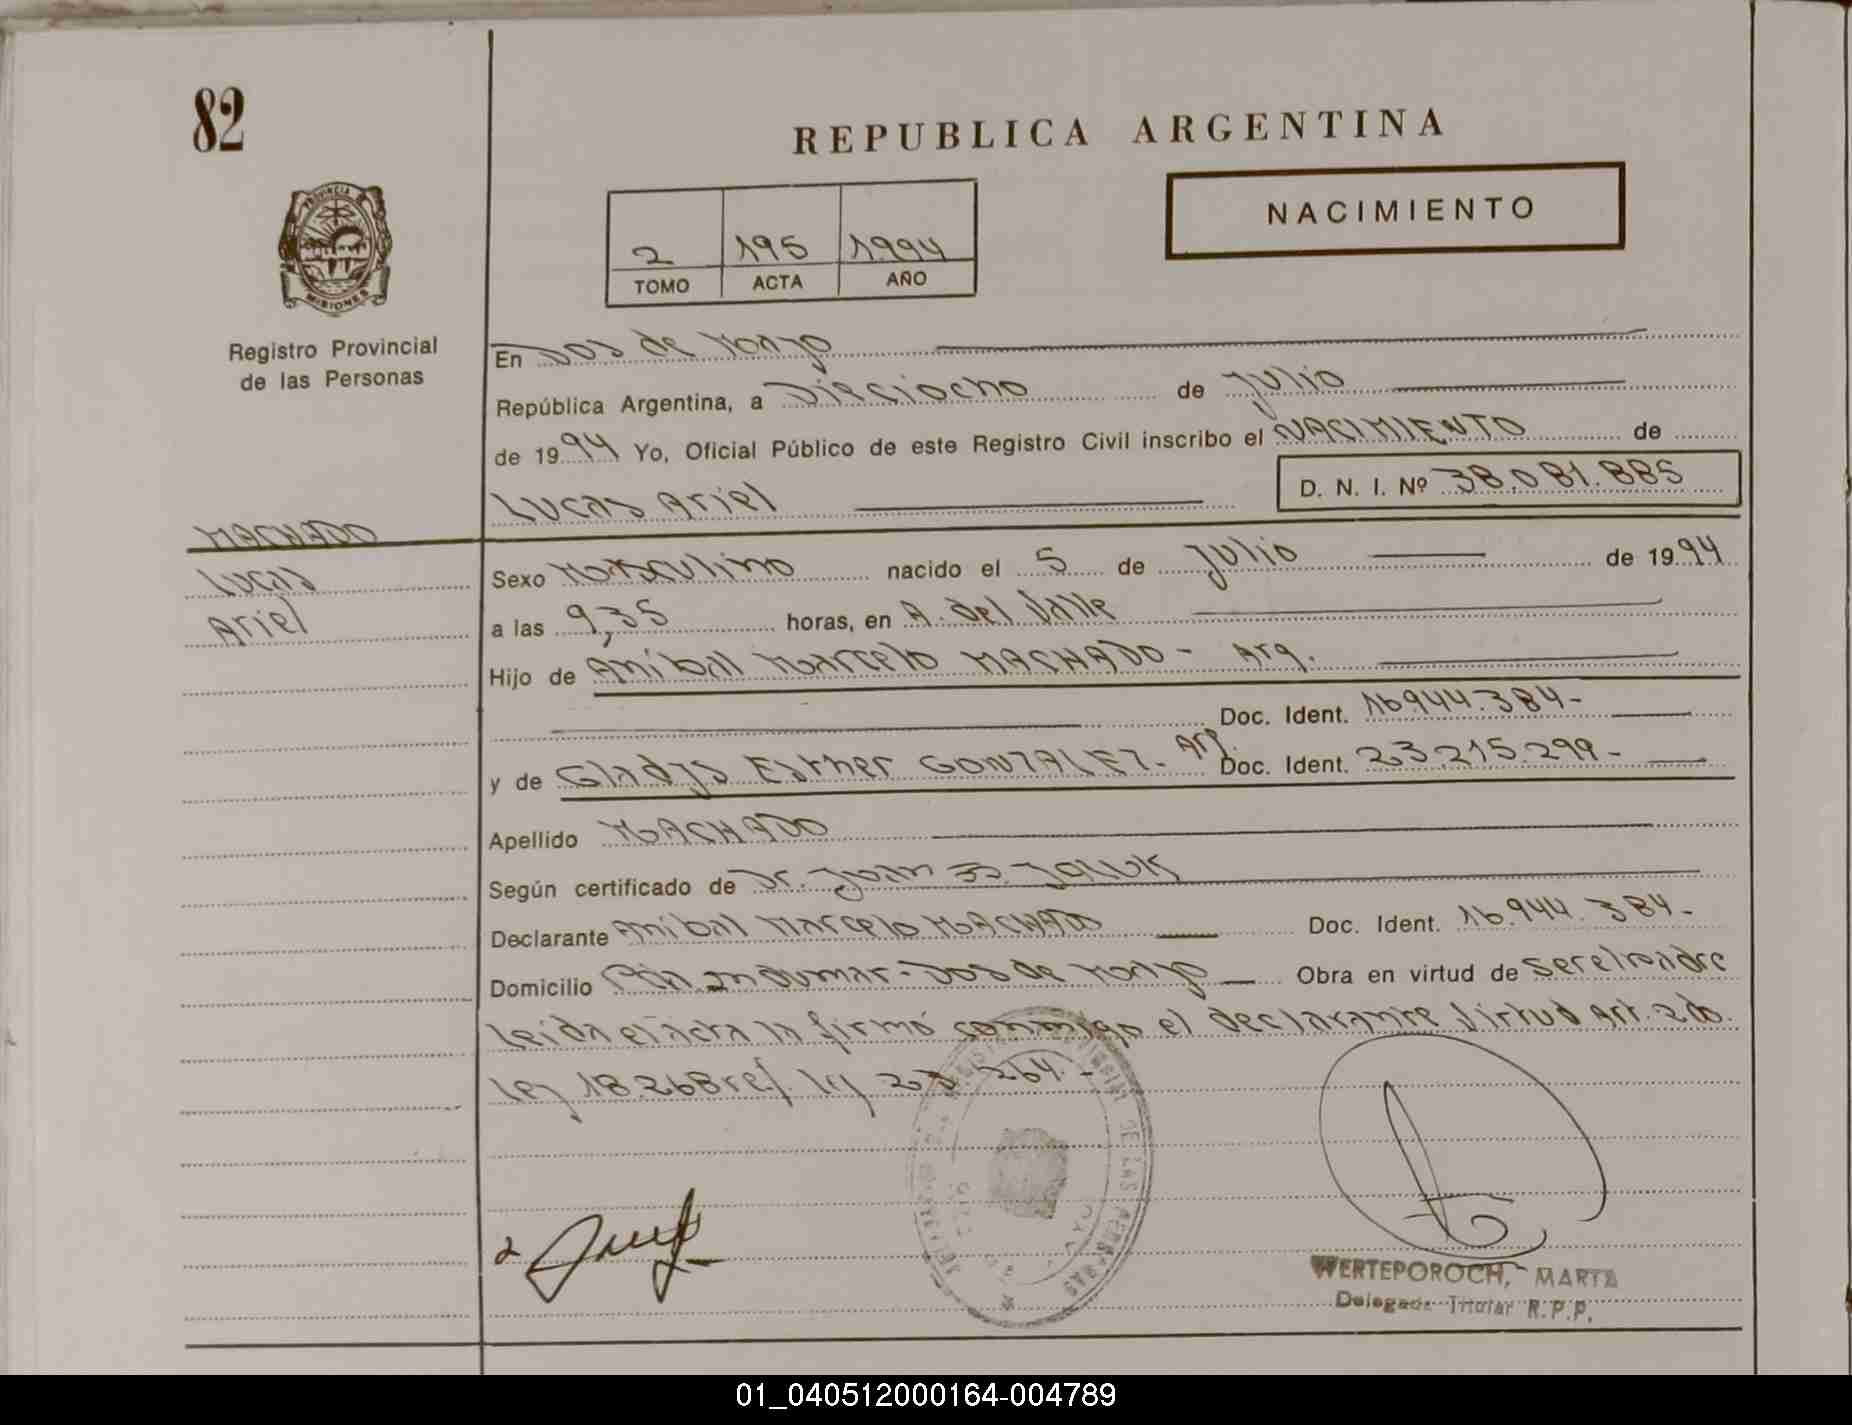 82
REPUBLICA ARGENTINA
NACIMIENTO
PROVINCIA DE
MISIONES
2 195 1994
TOMO ACTA AÑO
Registro Provincial
de las Personas
En Dos de Mayo
República Argentina, a Dieciocho de Julio
de 1994 Yo, Oficial Público de este Registro Civil inscribo el NACIMIENTO de
Lucas Ariel D. N. I. Nº 38.081.885
MACHADO
Lucas
Ariel
Sexo Masculino nacido el 5 de Julio de 1994
a las 9,35 horas, en A. del Valle
Hijo de Anibal Marcelo MACHADO - Arg.
Doc. Ident. 16944.384-
y de Gladys Esther GONZALEZ- Arg. Doc. Ident. 23.215.299-
Apellido MACHADO
Según certificado de Dr. Juan
Declarante Anibal Marcelo MACHADO Doc. Ident. 16.944.384-
Domicilio - Dos de Mayo Obra en virtud de ser el padre
Leida el acta la firmó conmigo el declarante Virtud Art. 2do.
ley 18.268 ref. ley 23.264.-
WERTEPOROCH, MARTA
Delegada Titular R.P.P.
01_040512000164-004789